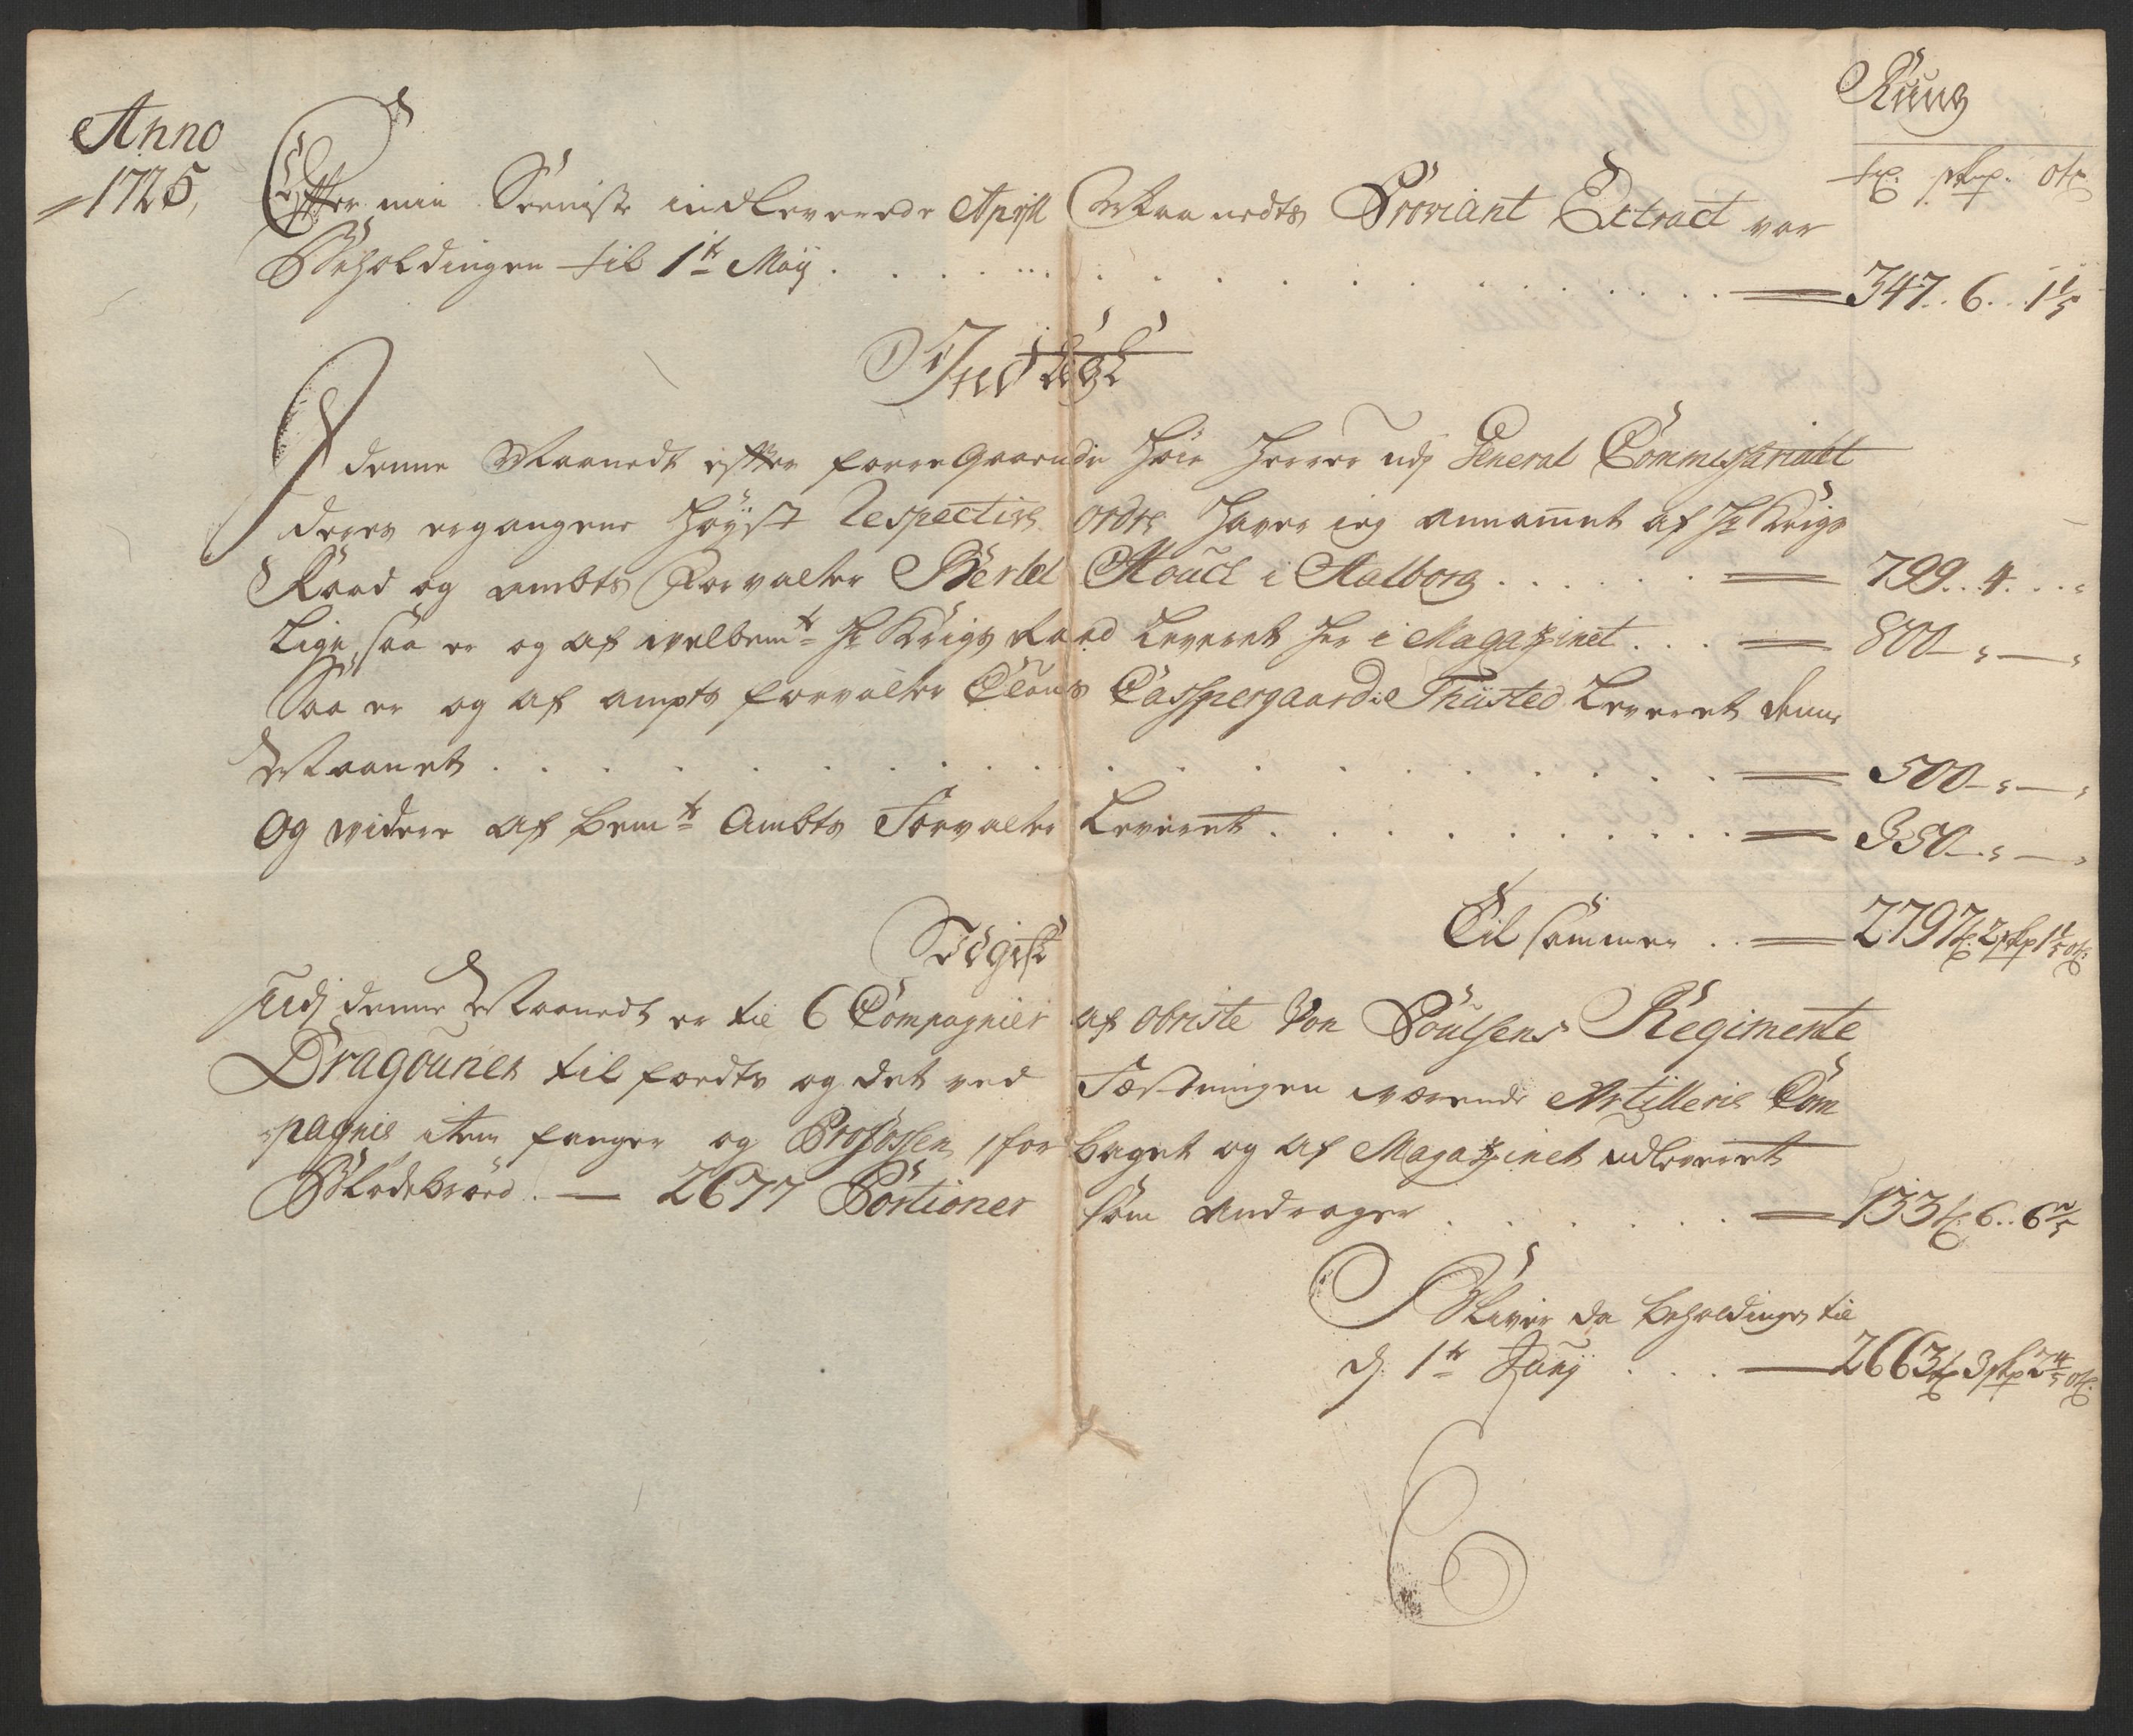 Anno
1725,
Ruug
tr. skp. otk
Efter min Seeniste indleverede Apryll Maanedts Proviant Extract var
Beholdingen til 1te Maij . . . . . . 347.. 6... 1 1/5
Indtegt
I denne Maanedt efter forregaaende Høie Herrer udj General Commissariatet
deres ergangene Høyst Respective Ordre haver ieg annammet af Hr Krigs
Raad og ambts Forvalter Bertel Houck i Aalborg . . . . . . 799.. 4...
Lige saa er og af welbemte Hr Krigs Raad Leveret her i Magazinet . . . 800
Saa er og af ampts forvalter Claus Casspergaard i Thiisted Leveret denne
Maanet . . . . . . 500
Og videre af bemte Ambts Forvalter Leveret . . . . . . 350
Til sammen . . 2797 tr. 2 skp 1 1/5 otk:
Udgift
Udj denne Maanedt er til 6 Compagnier af Obriste Von Poulsens Regimente
Dragouner til fordts og det ved Fæstningen værende Artillerie Com
pagnie, item fanger og Profossen, forbaget og af Magazinet udleveret
Bløde brød. — 2677 Portioner som Andrager . . . . . . 133 tr. 6.. 6 2/5
Bliver da beholdingen til
d. 1te Junij . . . 2663 tr 3 skp 2 4/5 otk.